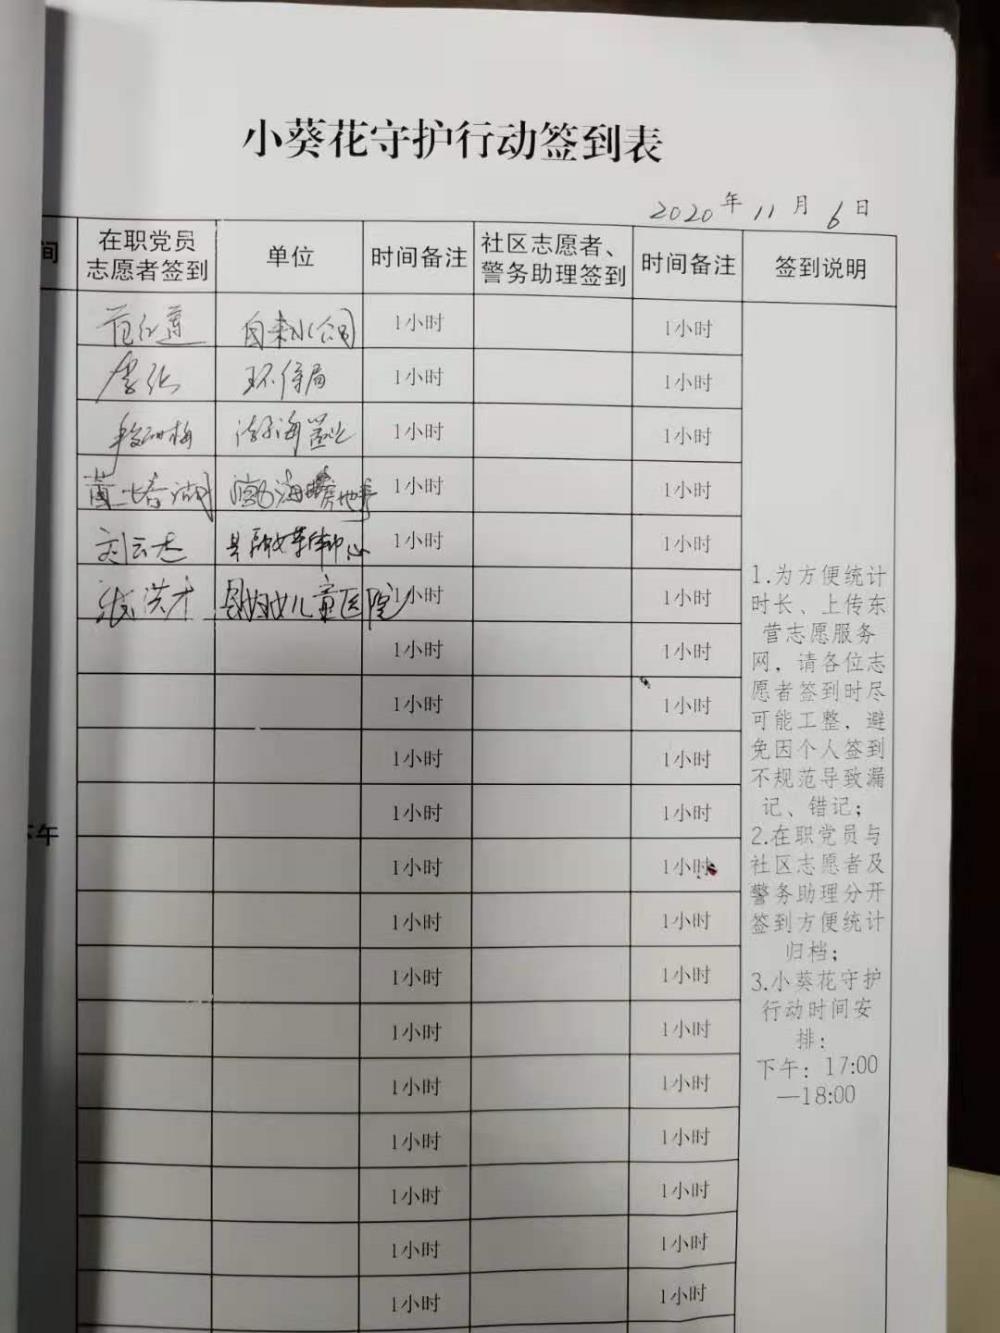 小葵花守护行动签到表
2020年11月6日
间
在职党员
志愿者签到
单位
时间备注
社区志愿者、
警务助理签到
时间备注
签到说明
范红莲 自来水公司 1小时 1小时
环保局 1小时 1小时
渤海 1小时 1小时
渤海 1小时 1小时
刘云志 1小时 1小时
张洪才 县妇女儿童医院 1小时 1小时
1小时 1小时
1小时 1小时
1小时 1小时
1小时 1小时
1小时 1小时
1小时 1小时
1小时 1小时
1小时 1小时
1小时 1小时
1小时 1小时
1小时 1小时
1小时 1小时
1小时 1小时
下午
1.为方便统计
时长、上传东
营志愿服务
网，请各位志
愿者签到时尽
可能工整，避
免因个人签到
不规范导致漏
记、错记；
2.在职党员与
社区志愿者及
警务助理分开
签到方便统计
归档；
3.小葵花守护
行动时间安
排：
下午：17:00
—18:00